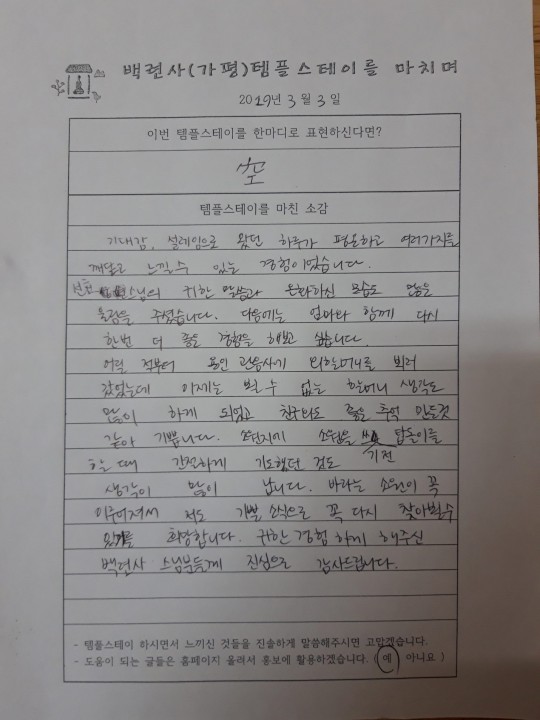 백련사(가평)템플스테이를 마치며
2019년 3월 3일
이번 템플스테이를 한마디로 표현하신다면?
空
템플스테이를 마친 소감
기대감, 설레임으로 왔던 하루가 평온하고 여러가지를
깨닫고 느낄 수 있는 경험이었습니다.
스님의 귀한 말씀과 온화하신 모습도 많은
울림을 주셨습니다. 다음에는 엄마와 함께 다시
한번 더 좋은 경험을 해보고 싶습니다.
어릴 적부터 용인 관음사에 외할머니를 뵈러
갔었는데 이제는 뵐 수 없는 할머니 생각도
많이 하게 되었고 친구와도 좋은 추억 만든것
같아 기쁩니다. 소원지에 소원을 탑돌이를
할 때 간절하게 기도했던 것도
생각이 많이 납니다. 바라는 소원이 꼭
이루어져서 저도 기쁜 소식으로 꼭 다시 찾아뵐수
있기를 희망합니다. 귀한 경험 하게 해주신
백련사 스님분들께 진심으로 감사드립니다.
- 템플스테이 하시면서 느끼신 것들을 진솔하게 말씀해주시면 고맙겠습니다.
- 도움이 되는 글들은 홈페이지 올려서 홍보에 활용하겠습니다. ( 예 아니요 )